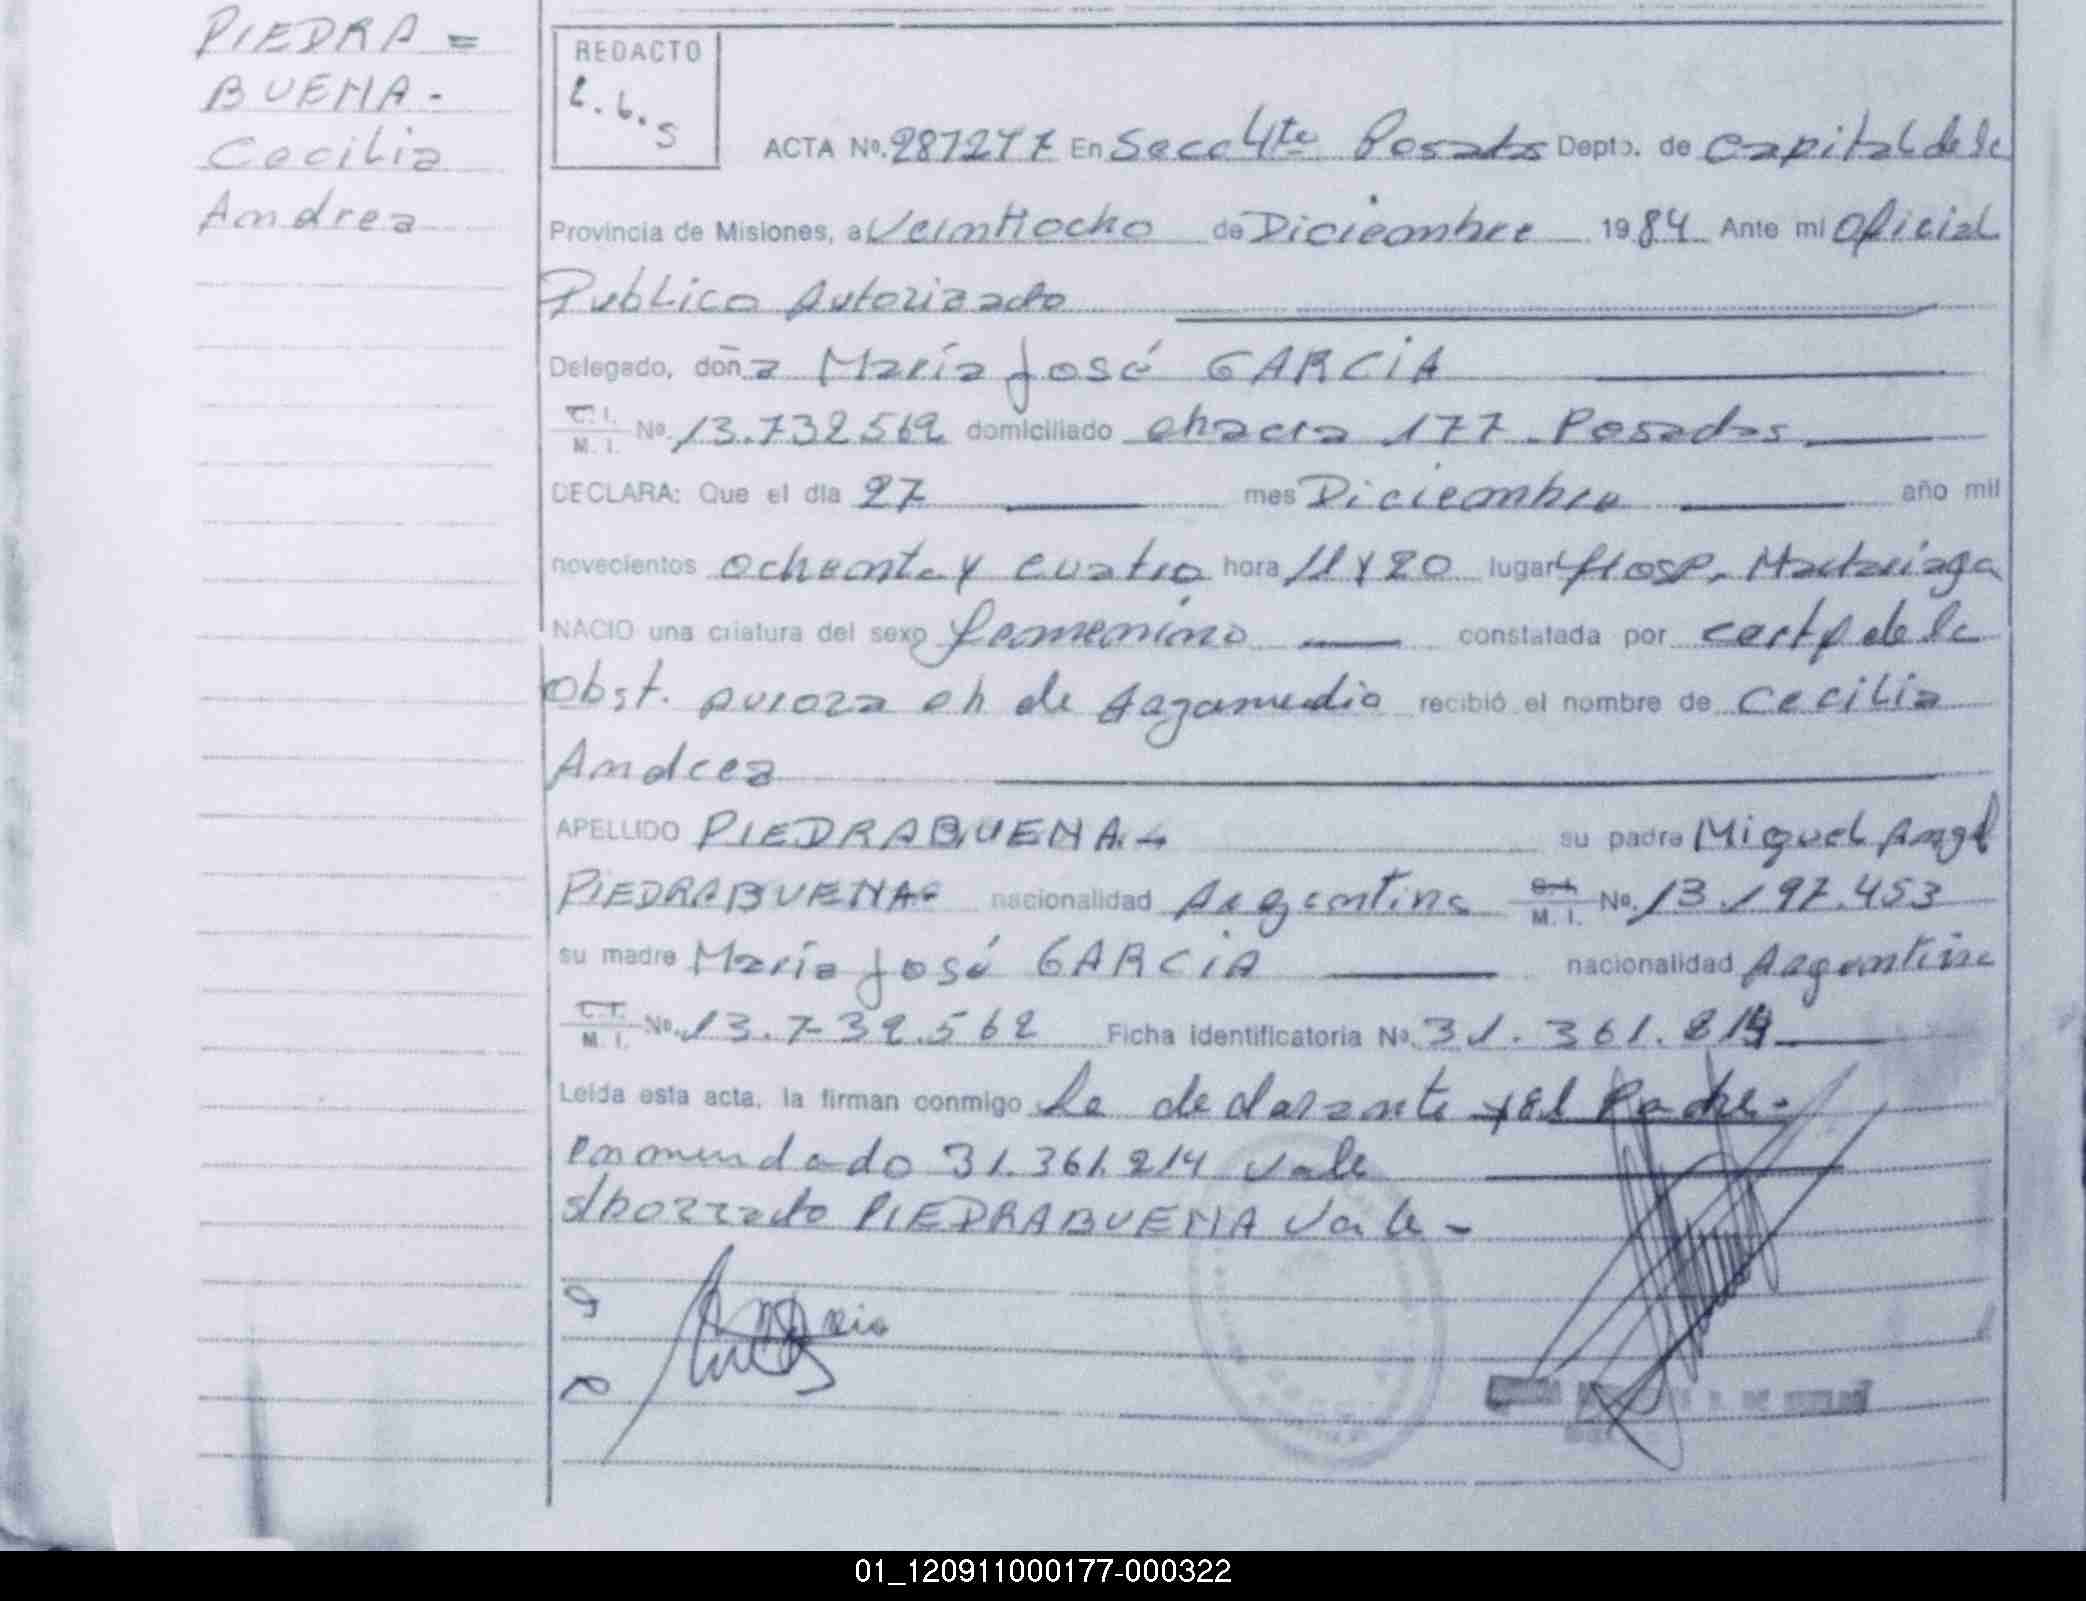 PIEDRA =
BUENA -
Cecilia
Andrea
REDACTO
ACTA Nº. 287277 En Secc 4ta Posadas Depto. de Capital de la
Provincia de Misiones, a Veintiocho de Diciembre 1984 Ante mi Oficial
Publico Autorizado
Delegado, doña Maria José GARCIA
C. I. / M. I. Nº. 13.732562 domiciliado chacra 177 - Posadas
DECLARA: Que el día 27 mes Diciembre año mil
novecientos ochenta y cuatro hora 11 y 20 lugar Hosp. Madariaga
NACIO una criatura del sexo femenino constatada por certf de la
Obst. Aurora ch de recibió el nombre de Cecilia
Andrea
APELLIDO PIEDRABUENA.- su padre Miguel Angel
PIEDRABUENA- nacionalidad Argentina C. I. / M. I. Nº. 13.197.453
su madre Maria José GARCIA nacionalidad Argentina
C. I. / M. I. Nº. 13.732.562 Ficha identificatoria Nº. 31.361.214
Leída esta acta, la firman conmigo La declarante y el Padre-
enmendado 31.361.214 vale
s/borrado PIEDRABUENA Vale -
01_120911000177-000322